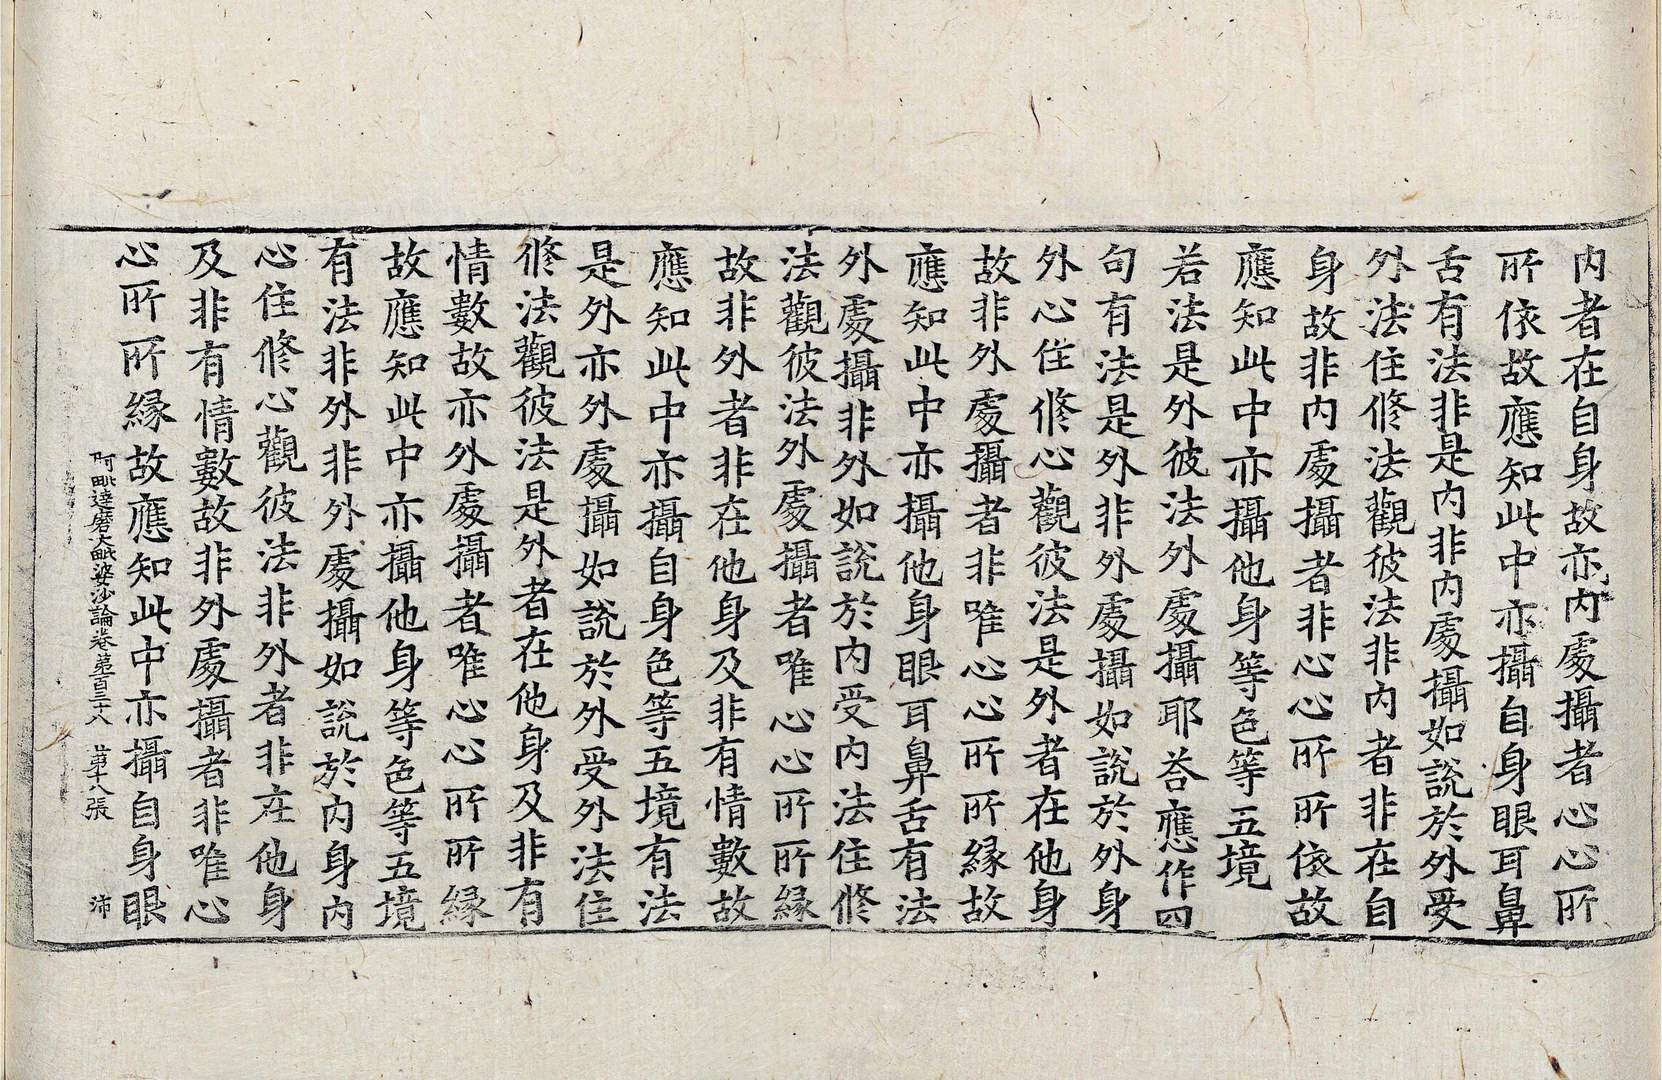 内者在自身故亦内處攝者心心所
所依故應知此中亦攝自身眼耳鼻
舌有法非是内非内處攝如說於外受
外法住修法觀彼法非内者非在自
身故非内處攝者非心心所所依故
應知此中亦攝他身等色等五境
若法是外彼法外處攝耶荅應作四
句有法是外非外處攝如說於外身
外心住修心觀彼法是外者在他身
故非外處攝者非唯心心所所縁故
應知此中亦攝他身眼耳鼻舌有法
外處攝非外如說於内受内法住修
法觀彼法外處攝者唯心心所所縁
故非外者非在他身及非有情數故
應知此中亦攝自身色等五境有法
是外亦外處攝如說於外受外法住
修法觀彼法是外者在他身及非有
情數故亦外處攝者唯心心所所縁
故應知此中亦攝他身等色等五境
有法非外非外處攝如說於内身内
心住修心觀彼法非外者非在他身
及非有情數故非外處攝者非唯心
心所所縁故應知此中亦攝自身眼
阿毗達磨大毗婆沙論卷第百三十八 第十八張 沛